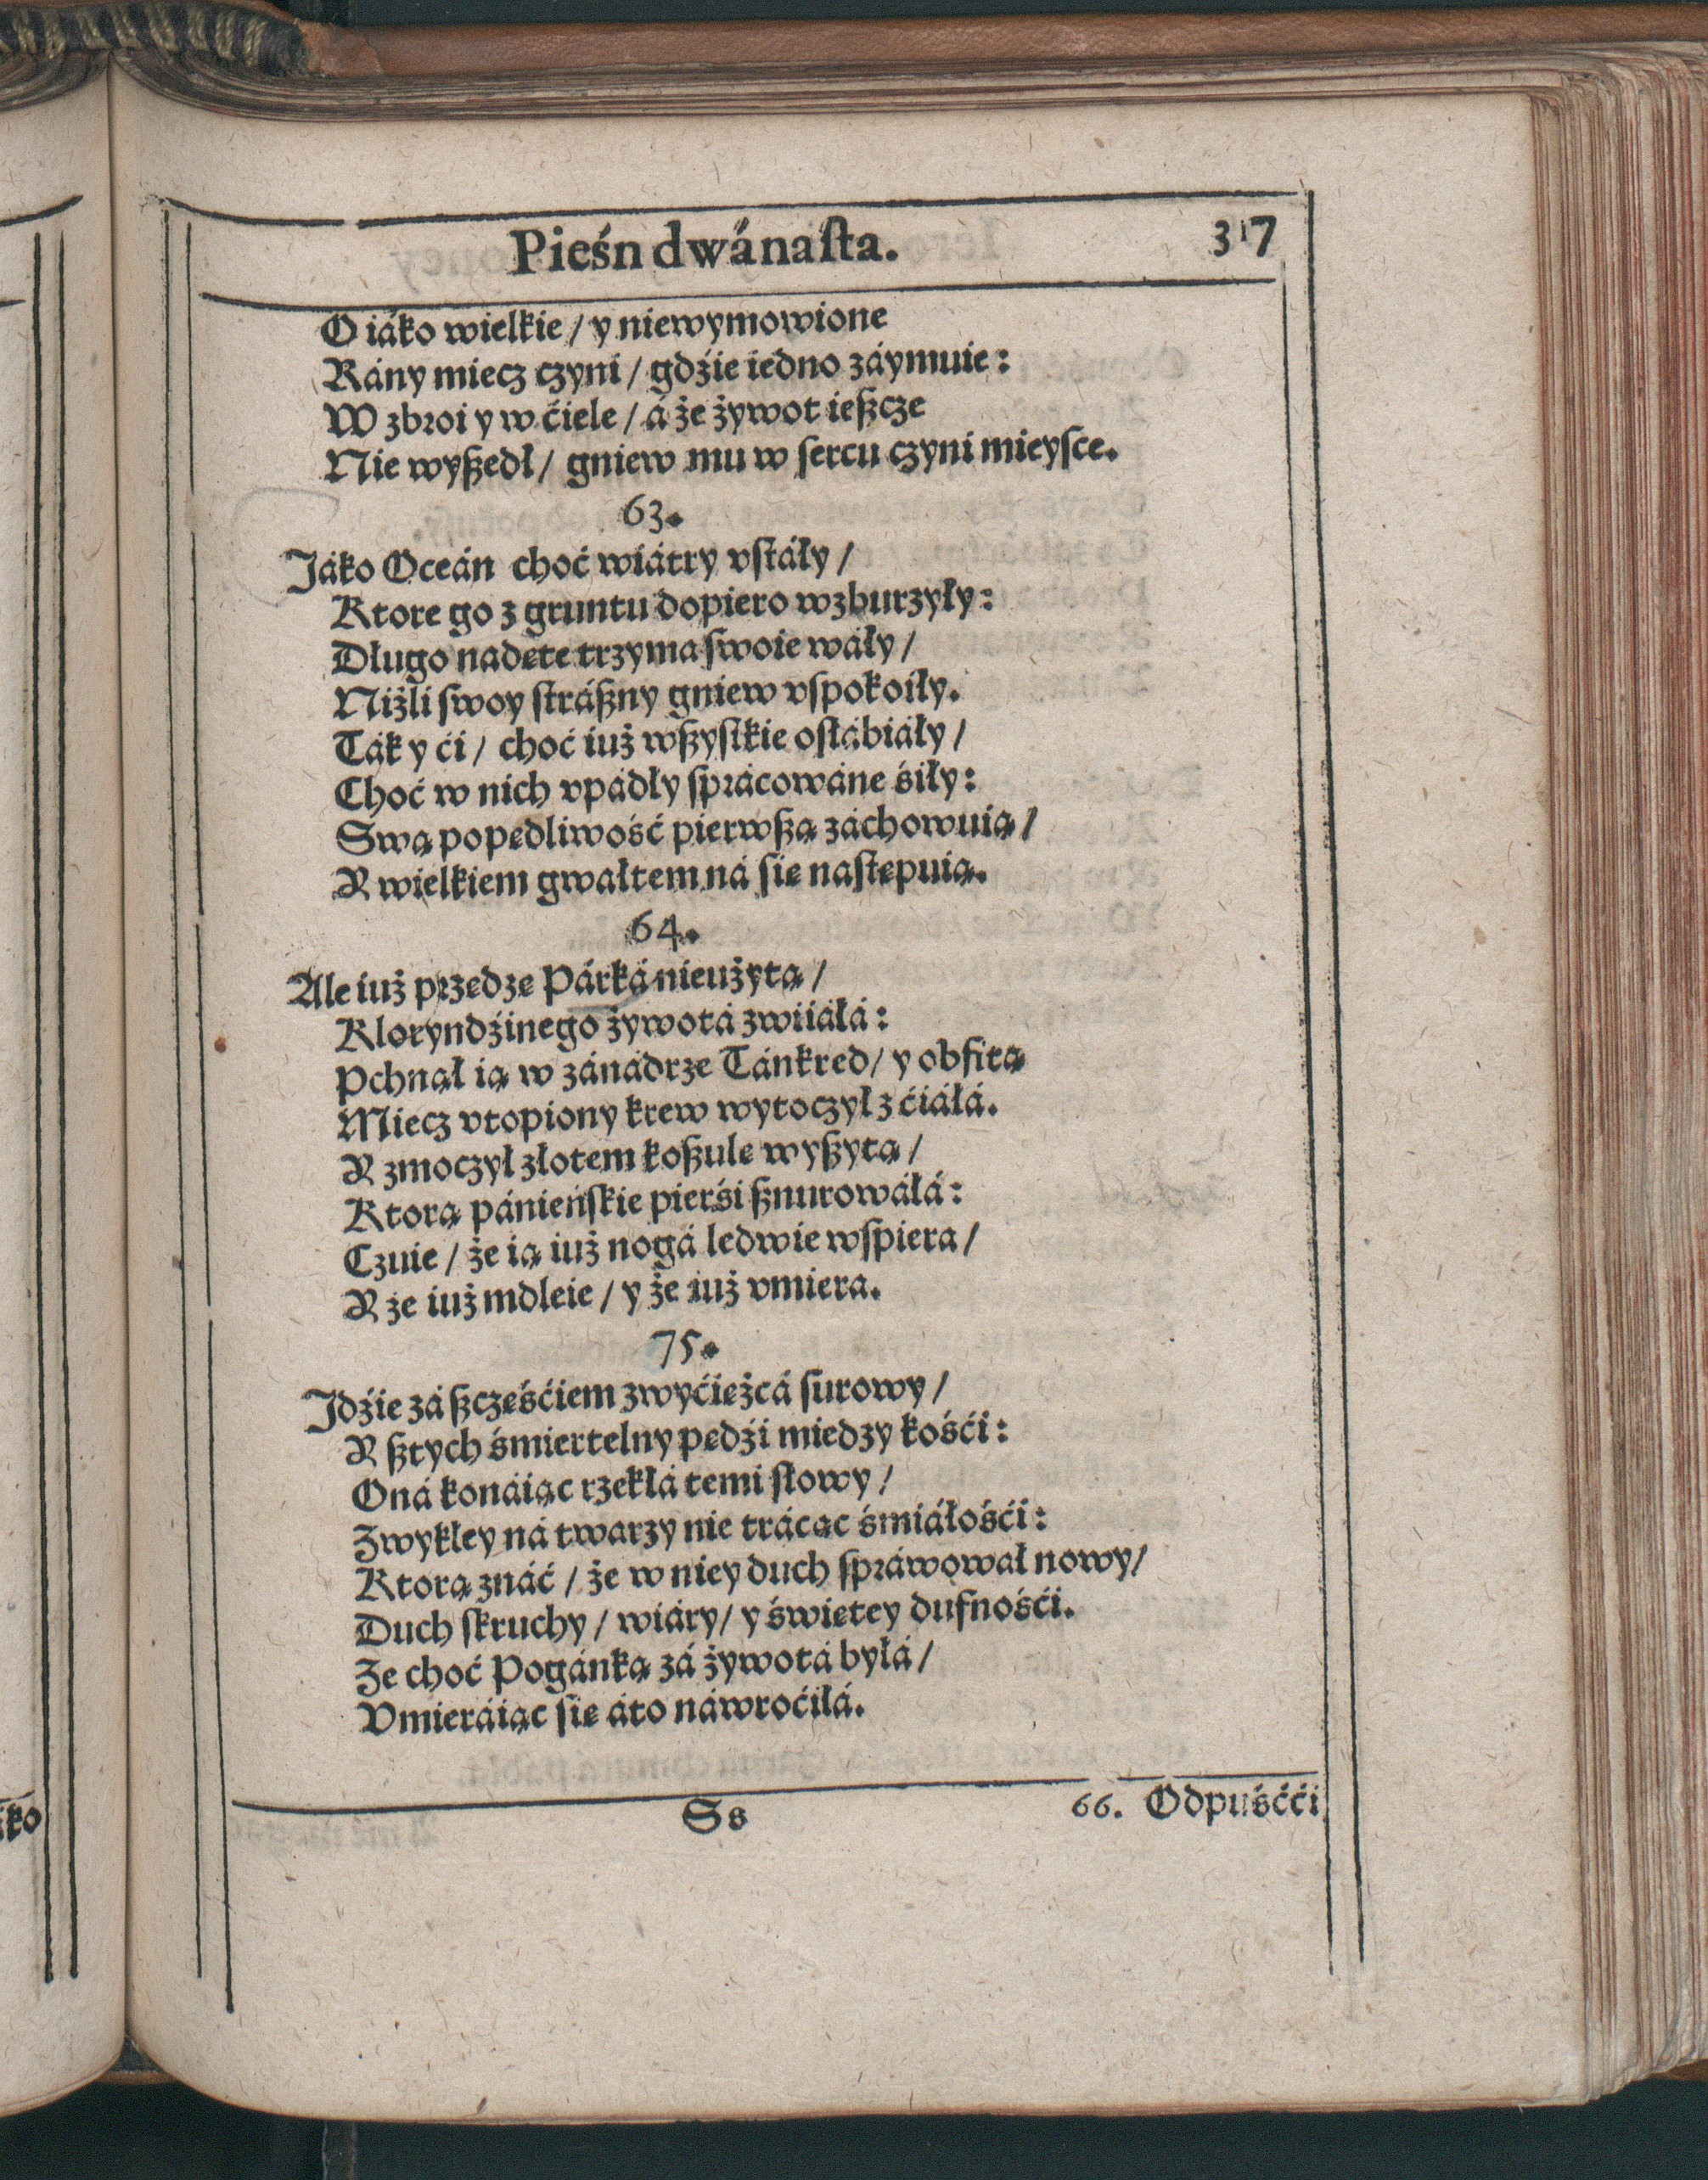 Pieśn dwánaſta. 317
O iáko wielkie / y niewymowione
Rány miecz czyni / gdźie iedno záymuie:
W zbroi y w ćiele / á że żywot ieſzcze
Nie wyſzedł / gniew mu w ſercu czyni mieyſce.
63.
Jáko Oceán choć wiátry vſtáły /
Ktore go z gruntu dopiero wzburzyły:
Długo nadęte trzyma ſwoie wáły /
Niżli ſwoy ſtráſzny gniew vſpokoiły.
Ták y ći / choć iuż wſzyſtkie oſłábiáły /
Choć w nich vpádły ſprácowáne śiły:
Swą popędliwość pierwſzą záchowuią /
Y wielkiem gwałtem ná ſię naſtępuią.
64.
Ale iuż przędze Párká nieużyta /
Kloryndźinego żywotá zwiiáłá:
Pchnął ią w zánádrze Tánkred / y obfitą
Miecz vtopiony krew wytoczył z ćiáłá.
Y zmoczył złotem koſzulę wyſzytą /
Ktora pánieńſkie pierśi ſznurowáłá:
Czuie / że ią iuż nogá ledwie wſpiera /
Y że iuż mdleie / y że iuż vmiera.
75.
Jdźie zá ſzczęśćiem zwyćiężcá ſurowy /
Y ſztych śmiertelny pędźi miedzy kośći:
Oná konáiąc rzekłá temi ſłowy /
Zwykłey ná twarzy nie trácąc śmiáłośći:
Ktorą znáć / że w niey duch ſpráwował nowy /
Duch ſkruchy / wiáry / y świętey dufnośći.
Ze choć Pogánką zá żywotá byłá /
Vmieráiąc ſię áto náwroćiłá.
Ss 66. Odpuśćći
iko